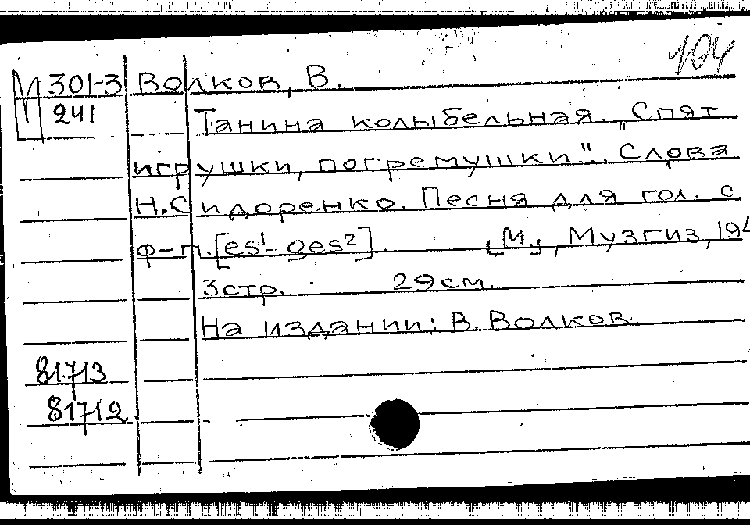 104
М 301-3 Волков, В.
241 Танина колыбельная. „Спят
игрушки, погремушки". Слова
Н.Сидоренко. Песня для гол. с
ф-п. [es¹- ges²]. [М.], Музгиз, 194
3стр. 29см.
На издании: В. Волков
81713
81712